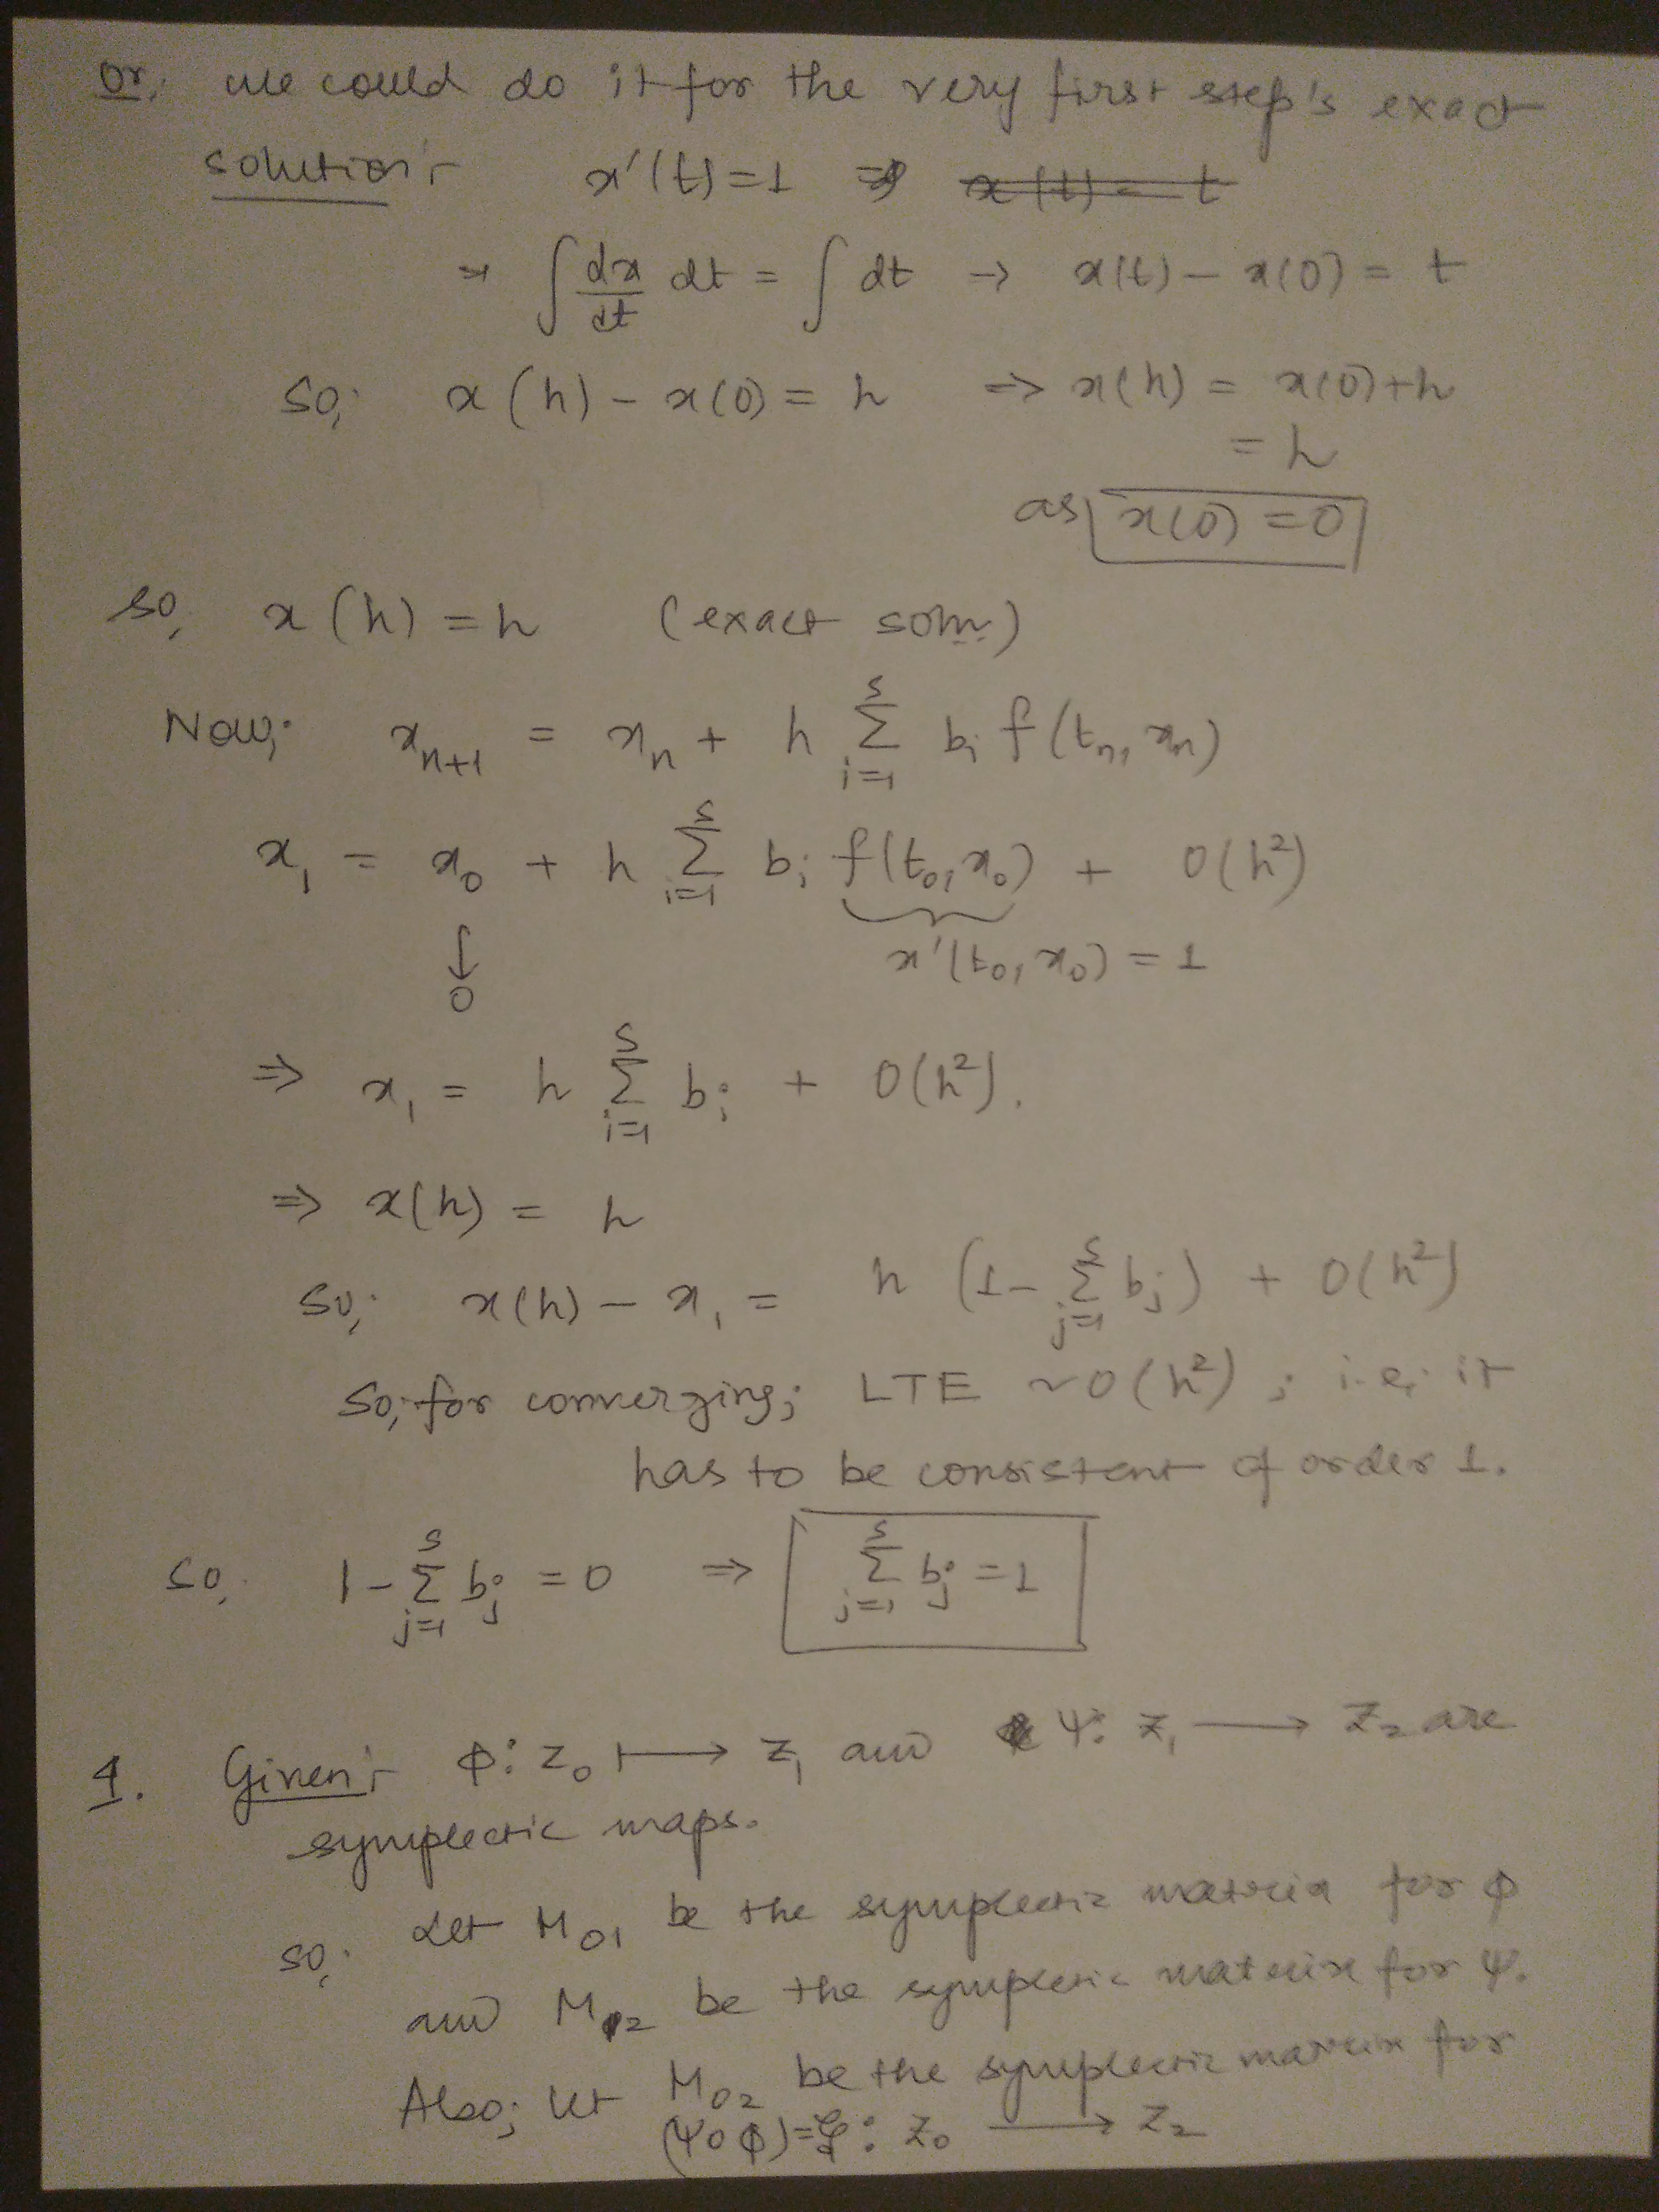 or, we could do it for the very first step's exact
solution:- x'(t) = 1 ⇒ x(t) = t
⇒ ∫ dx/dt dt = ∫ dt → x(t) - x(0) = t
So, x(h) - x(0) = h ⇒ x(h) = x(0)+h
= h
as x(0) = 0
so, x(h) = h (exact soln.)
Now, x_{n+1} = x_n + h Σ_{i=1}^{s} b_i f(t_n, x_n)
x_1 = x_0 + h Σ_{i=1}^{s} b_i f(t_0, x_0) + O(h²)
↓ x'(t_0, x_0) = 1
0
⇒ x_1 = h Σ_{i=1}^{s} b_i + O(h²).
⇒ x(h) = h
So, x(h) - x_1 = h (1 - Σ_{j=1}^{s} b_j) + O(h²)
So, for converging; LTE ~ O(h²) ; i.e. it
has to be consistent of order 1.
So, 1 - Σ_{j=1}^{s} b_j = 0 ⇒ Σ_{j=1}^{s} b_j = 1
4. Given:- φ: z_0 ↦ z_1 and ψ: z_1 → z_2 are
symplectic maps.
so, Let M_{01} be the symplectic matrix for φ
and M_{12} be the symplectic matrix for ψ.
Also; let M_{02} be the symplectic matrix for
(ψ o φ) = : z_0 → z_2